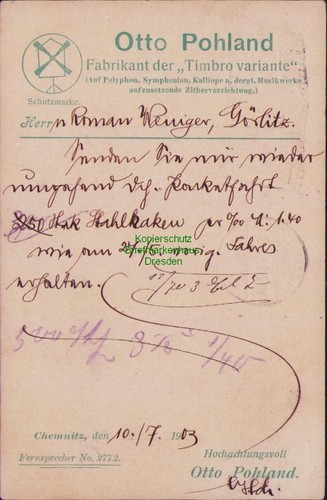 Otto Pohland
Fabrikant der „Timbro variante“
(Auf Polyphon, Symphonion, Kalliope u. dergl. Musikwerke
aufzusetzende Zithervorrichtung.)
Schutzmarke.
Herrn Roman Weniger, Görlitz.
Senden Sie mir wieder
umgehend dch. Packetfahrt
250 Stahlhaken per %00 M. 1.40
wie am vorig. Jahres
erhalten.
Kopierschutz
Briefmarkenhaus
Dresden
Chemnitz, den 10./7. 1903
Fernsprecher No. 2772.
Hochachtungsvoll
Otto Pohland.